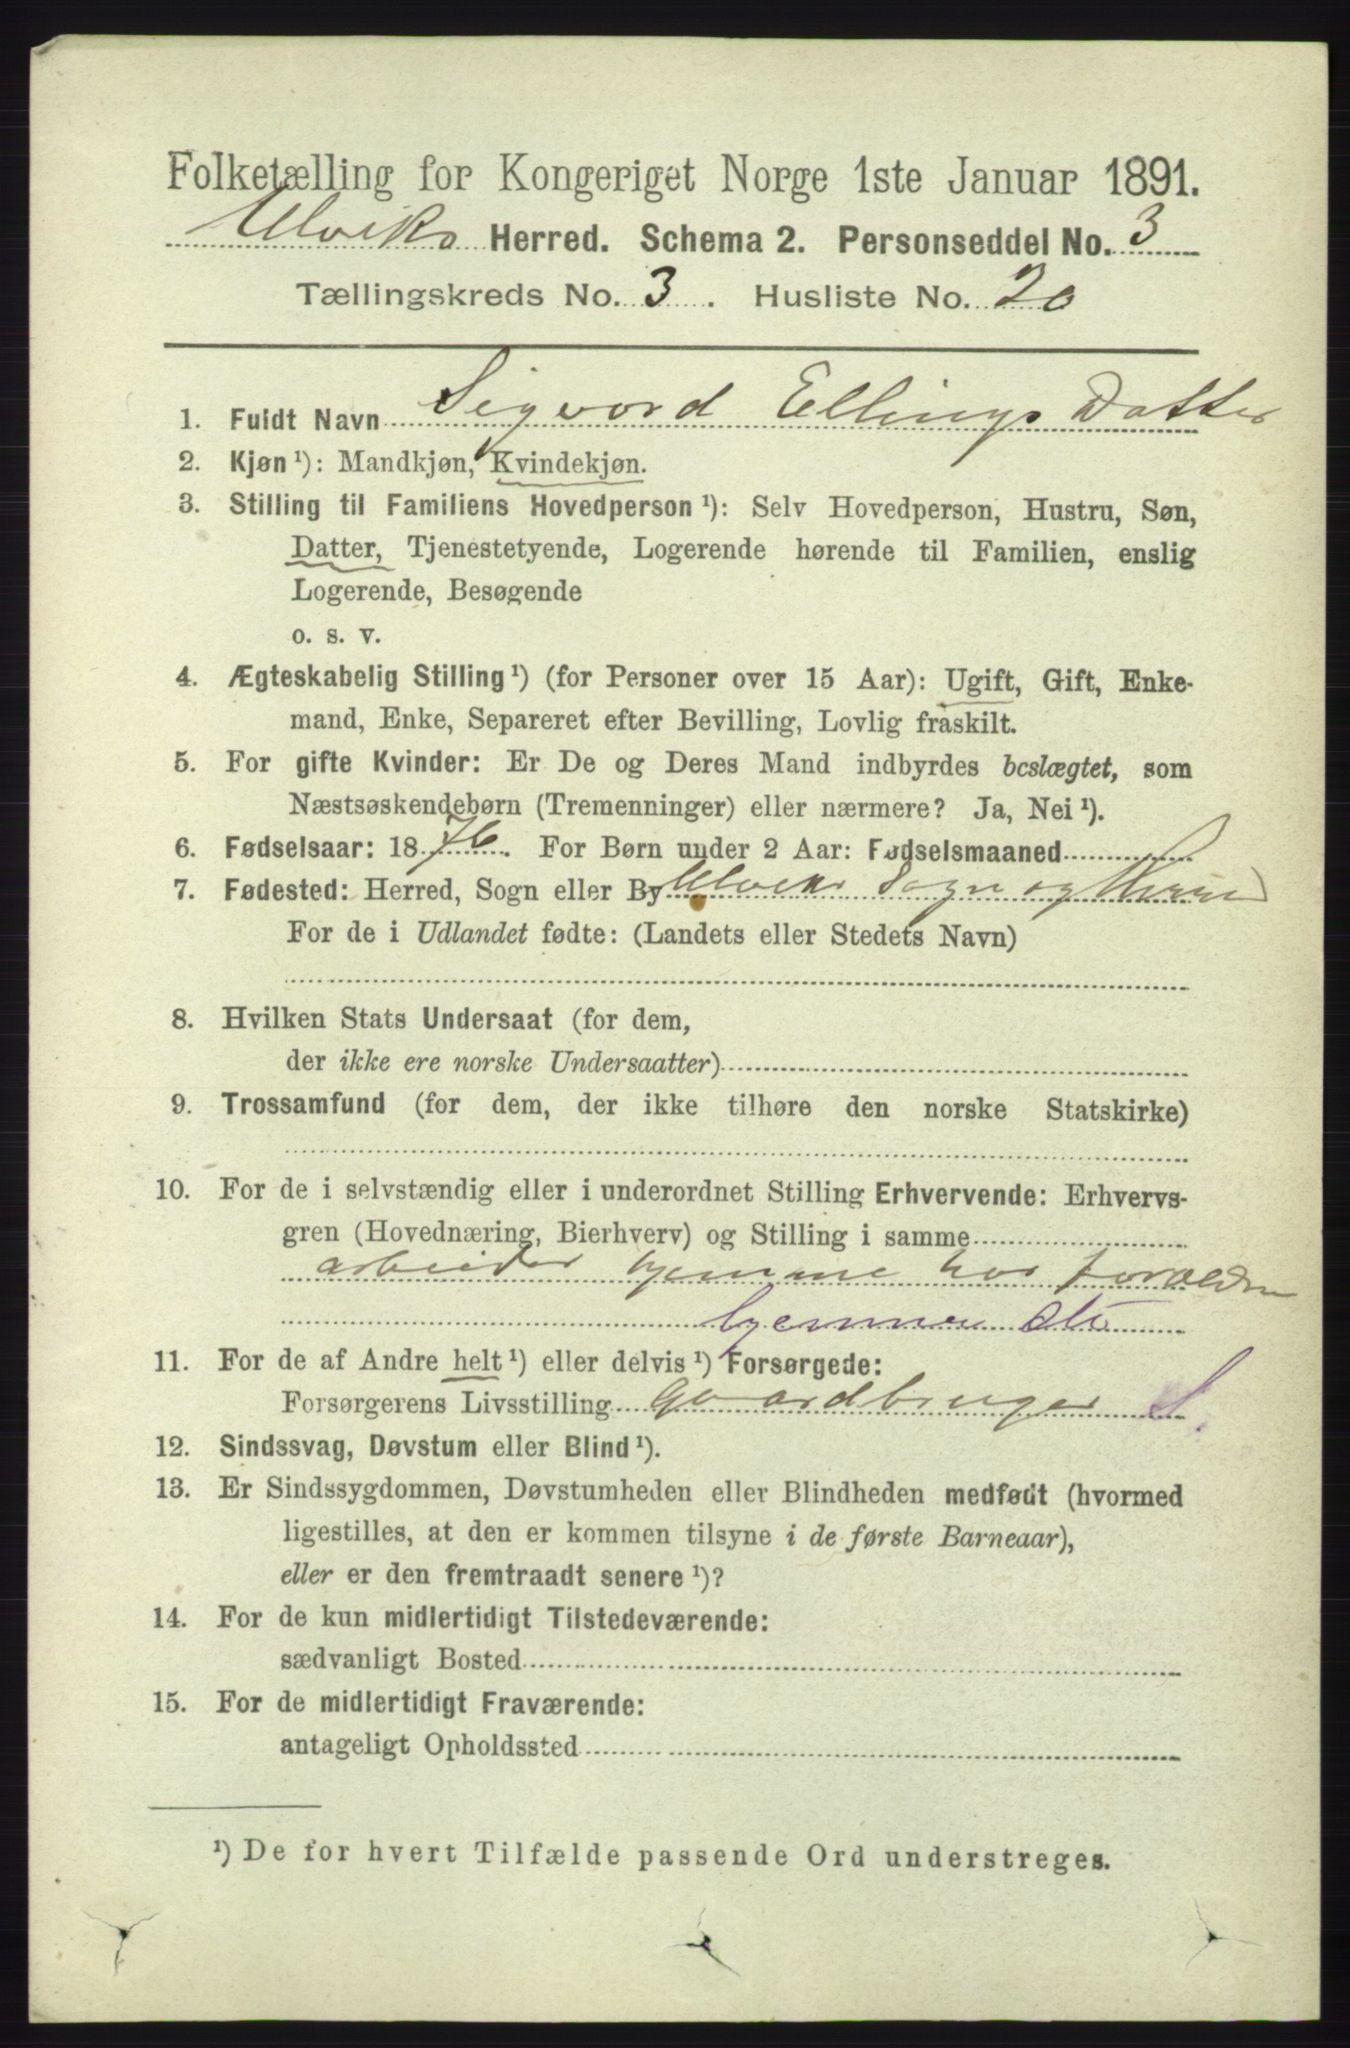 Folketælling for Kongeriget Norge 1ste Januar 1891.
Ulviks Herred. Schema 2. Personseddel No. 3
Tællingskreds No. 3. Husliste No. 20
1. Fuldt Navn Sigvord Ellings Datter
2. Kjøn ¹): Mandkjøn, Kvindekjøn.
3. Stilling til Familiens Hovedperson ¹): Selv Hovedperson, Hustru, Søn,
Datter, Tjenestetyende, Logerende hørende til Familien, enslig
Logerende, Besøgende
o. s. v.
4. Ægteskabelig Stilling ¹) (for Personer over 15 Aar): Ugift, Gift, Enke-
mand, Enke, Separeret efter Bevilling, Lovlig fraskilt.
5. For gifte Kvinder: Er De og Deres Mand indbyrdes beslægtet, som
Næstsøskendebørn (Tremenninger) eller nærmere? Ja, Nei ¹).
6. Fødselsaar: 1876. For Børn under 2 Aar: Fødselsmaaned
7. Fødested: Herred, Sogn eller By Ulviks Sogn og
For de i Udlandet fødte: (Landets eller Stedets Navn)
8. Hvilken Stats Undersaat (for dem,
der ikke ere norske Undersaatter)
9. Trossamfund (for dem, der ikke tilhøre den norske Statskirke)
10. For de i selvstændig eller i underordnet Stilling Erhvervende: Erhvervs-
gren (Hovednæring, Bierhverv) og Stilling i samme
arbeider hjemme hos foræeldre
hjemme
11. For de af Andre helt ¹) eller delvis ¹) Forsørgede:
Forsørgerens Livsstilling Gaardbruger S.
12. Sindssvag, Døvstum eller Blind ¹).
13. Er Sindssygdommen, Døvstumheden eller Blindheden medfødt (hvormed
ligestilles, at den er kommen tilsyne i de første Barneaar),
eller er den fremtraadt senere ¹)?
14. For de kun midlertidigt Tilstedeværende:
sædvanligt Bosted
15. For de midlertidigt Fraværende:
antageligt Opholdssted
¹) De for hvert Tilfælde passende Ord understreges.